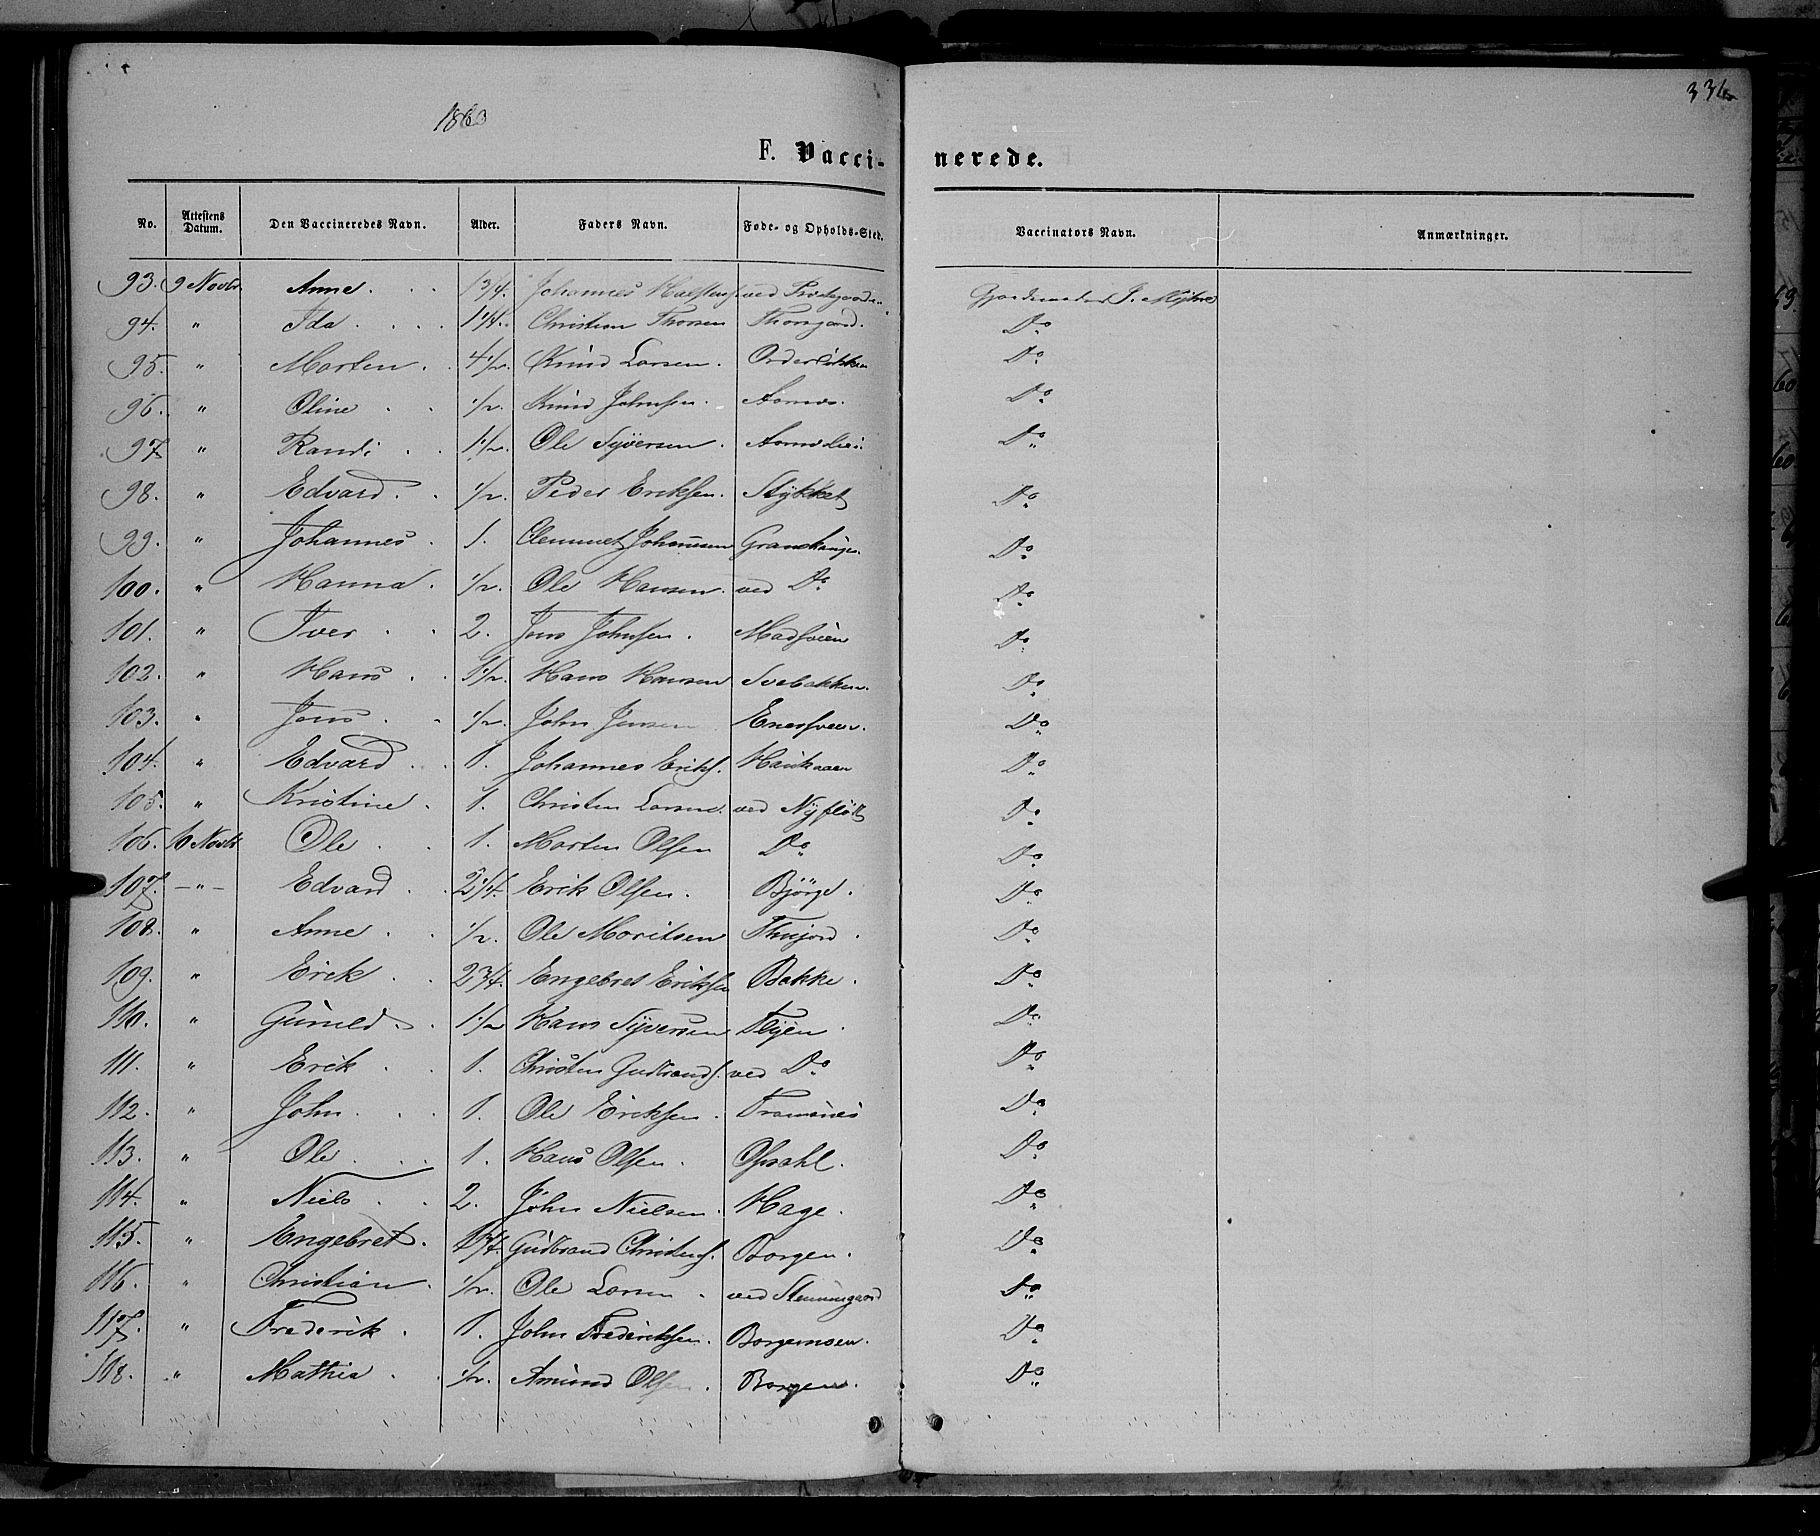 1863
336
F. Vaccinerede.
No. Attestens Datum. Den Vaccineredes Navn. Alder. Faders Navn. Føde- og Opholds-Sted. Vaccinators Navn. Anmærkninger.
93. 9 Novbr. Anne 1 3/4. Johannes ved
94. " Ida 1 1/4. Christian Thorsen Thorsgaard. Do
95. " Morten 4 1/2. Knud Larsen. Do
96. " Oline 1/2. Knud Johnsen. Do
97 " Randi 1 1/2. Ole Syversen. Do
98. " Edvard 1/2. Peder Eriksen. Stykket Do
99. " Johannes 1. Clemmet Johannesen Do
100. " Hanna 1/2. Ole Hansen. ved Do Do
101. " Iver 2. Jens Johnsen. Madsveen Do
102. " Hans 1 1/2. Hans Hansen Svebakken. Do
103. " Jens 1/2. John Jensen Do
104. " Edvard 1. Johannes Eriks. Haukaaen Do
105. " Kristine 1. Christen Larsen. ved Nyfløtt Do
106. 10 Novbr Ole 1. Morten Olsen Do Do
107. " Edvard 2 1/4. Erik Olsen. Bjørge. Do
108. " Anne 1/2. Ole Moritsen Do
109. " Erik 2 3/4. Engebret Eriksen Bakke. Do
110. " Guneld 1 1/2 Hans Syversen Flyen. Do
111. " Erik 1. Christen Gudbrands. ved Do Do
112. " John 1. Ole Eriksen. Do
113. " Ole 1. Hans Olsen. Opsahl. Do
114. " Niels 2. John Nielsen. Hage. Do
115. " Engebret. Gudbrand Christens. Borgen. Do
116. " Christian 1/2. Ole Larsen. ved Do
117. " Frederik. 1. John Frederiksen. Borgemoen. Do
108. " Mathia 1/2. Amund Olsen. Borgen. Do